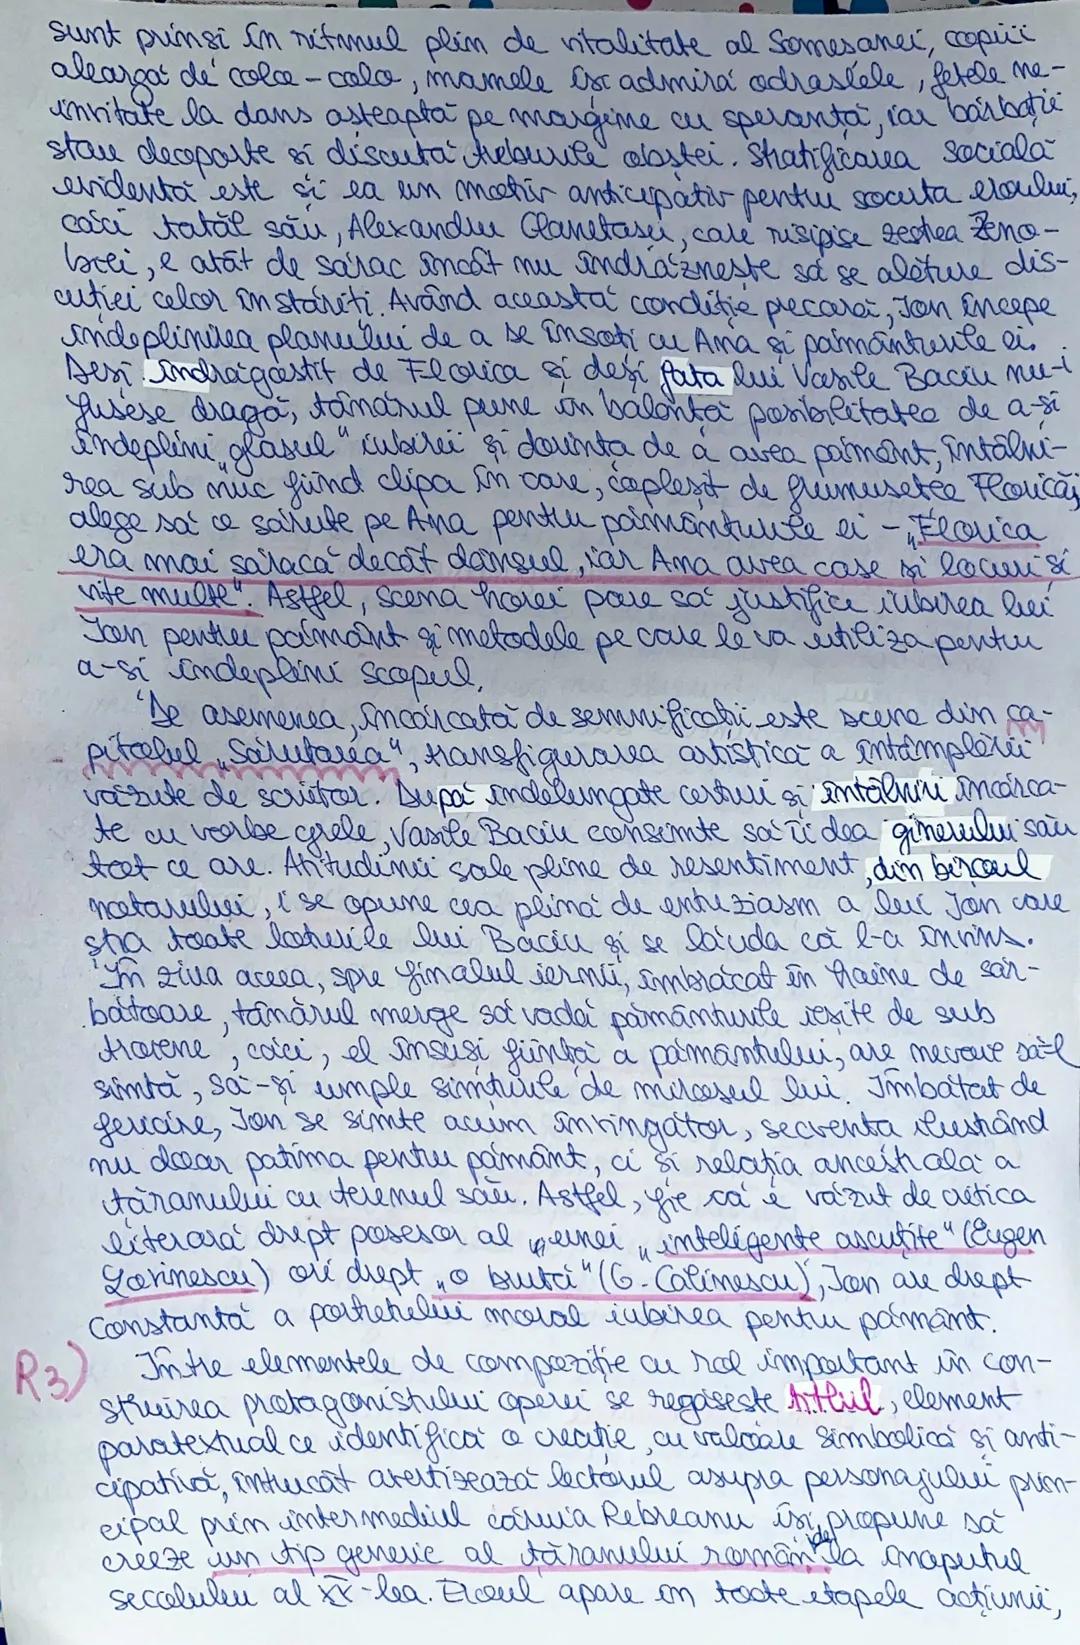 sunt prinși în ritmul plin de vitalitate al Someșanei, copiii
aleargă de colo-colo, mamele își admiră odraslele, fetele ne-
invitate la dans așteaptă pe margine cu speranță, iar bărbații
stau deoparte și discută treburile obștei. Stratificarea socială
evidentă este și ea un motiv anticipativ pentru soarta eroului,
căci tatăl său, Alexandru Glanetașu, care risipise zestrea Zeno-
biei, e atât de sărac încât nu îndrăznește să se alăture dis-
cuției celor înstăriți. Având această condiție precară, Ion începe
îndeplinirea planului de a se însoți cu Ana și pământurile ei.
Deși îndrăgostit de Florica și deși fata lui Vasile Baciu nu-i
fusese dragă, tânărul pune în balanță posibilitatea de a-și
îndeplini „glasul" iubirii și dorința de a avea pământ, întâlni-
rea sub nuc fiind clipa în care, copleșit de frumusețea Floricăi,
alege să o sărute pe Ana pentru pământurile ei - „Florica
era mai săracă decât dânsul, iar Ana avea case și locuri și
vite multe". Astfel, scena horei pare să justifice iubirea lui
Ion pentru pământ și metodele pe care le va utiliza pentru
a-și îndeplini scopul.
De asemenea, încărcată de semnificații este scena din ca-
pitolul „Sărutarea", transfigurarea artistică a întâmplării
văzute de scriitor. După îndelungate certuri și întâlniri încărca-
te cu vorbe grele, Vasile Baciu consimte să îi dea ginerelui său
tot ce are. Atitudinii sale pline de resentiment, din biroul
notarului, i se opune cea plină de entuziasm a lui Ion care
știa toate loturile lui Baciu și se lăuda că l-a învins.
În ziua aceea, spre finalul iernii, îmbrăcat în haine de săr-
bătoare, tânărul merge să vadă pământurile ieșite de sub
troiene, căci, el însuși ființă a pământului, are nevoie să-l
simtă, să-și umple simțurile de mirosul lui. Îmbătat de
fericire, Ion se simte acum învingător, secvența ilustrând
nu doar patima pentru pământ, ci și relația ancestrală a
țăranului cu terenul său. Astfel, fie că e văzut de critica
literară drept posesor al unei „inteligențe ascuțite" (Eugen
Lovinescu) ori drept „o brută" (G. Călinescu), Ion are drept
constantă a portretului moral iubirea pentru pământ.
R3) Între elementele de compoziție cu rol important în con-
struirea protagonistului operei se regăsește titlul, element
paratextual ce identifică o creație, cu valoare simbolică și anti-
cipativă, întrucât avertizează lectorul asupra personajului prin-
cipal prin intermediul căruia Rebreanu își propune să
creeze un tip generic al țăranului român de la începutul
secolului al XX-lea. Eroul apare în toate etapele acțiunii,